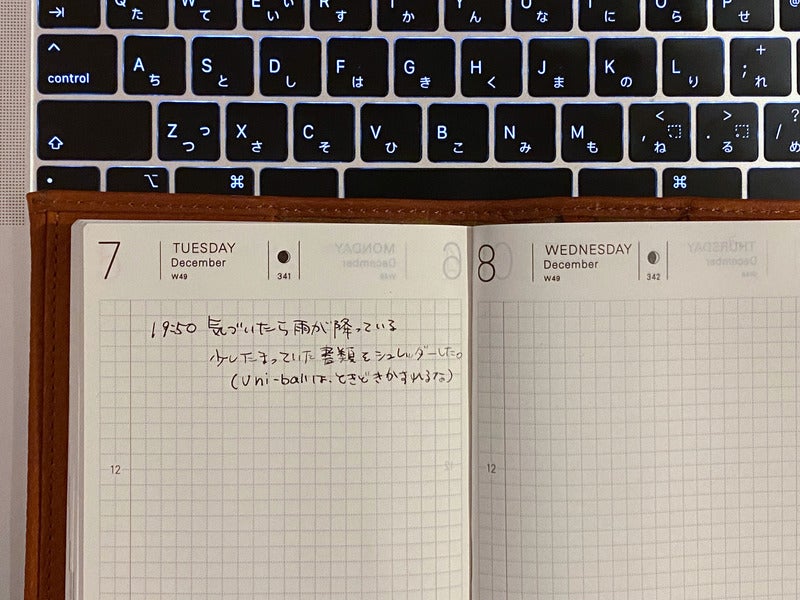 Q た W て E い い R す T か Y ん U な I に O ら P せ @
control A ち S と D し F は G き H く J ま K の L り + ; れ
Z つ っ X さ C そ V ひ B こ N み M も < , ね > . る ? / め
⌥ ⌘ ⌘
7 TUESDAY December W49 341
8 WEDNESDAY December W49 342
19:50 気づいたら雨が降っている
少したまっていた書類をシュレッダーした。
(uni-ballは、ときどきかすれるな)
12
12